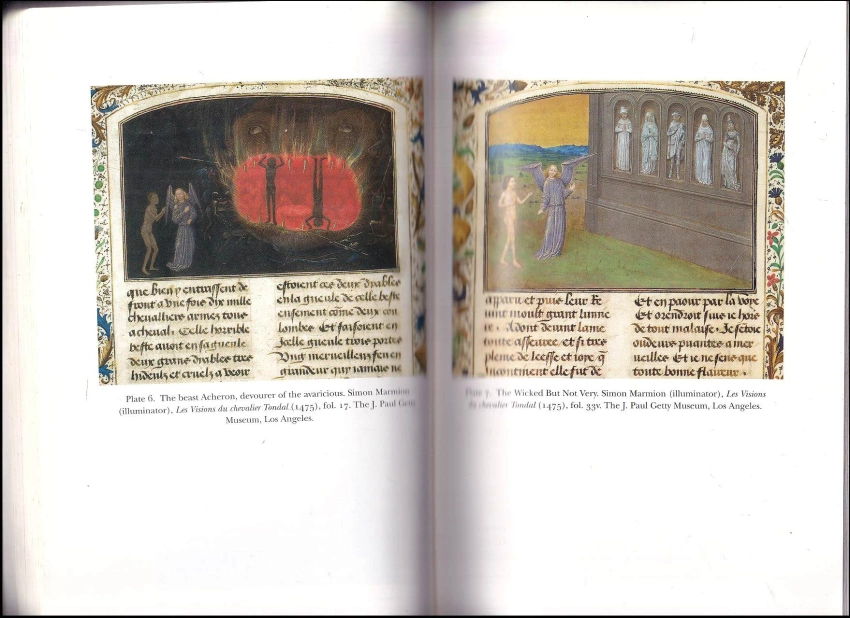 que bien y entrassent de
front a vne fois dix mille
chevalliers armez tous
a cheval. Celle horrible
beste avoit en sa gueule
deux grans dyables tres
hideulx et cruelz a veoir
estoient ces deux dyables
en la gueule de celle beste
ensement come deux cou
lombes. Et faisoient en
Icelle gueule trois portes
Vng merveilleux feu en
grandeur qui iamais ne
Plate 6. The beast Acheron, devourer of the avaricious. Simon Marmion
(illuminator), Les Visions du chevalier Tondal (1475), fol. 17. The J. Paul Getty
Museum, Los Angeles.
apparu et puis leur
unt moult grant lumie
Adont devint lame
toute asseuree, et si tres
pleme de leesse et ioye q
incontinent elle fut de
Et en paour par la voye
Et orendroit suis ie hors
de toute malaise. Je sctoie
ondeurs puantes a mer
veilles Et ie ne sens que
toute bonne flaireur.
Plate 7. The Wicked But Not Very. Simon Marmion (illuminator), Les Visions
du chevalier Tondal (1475), fol. 33v. The J. Paul Getty Museum, Los Angeles.